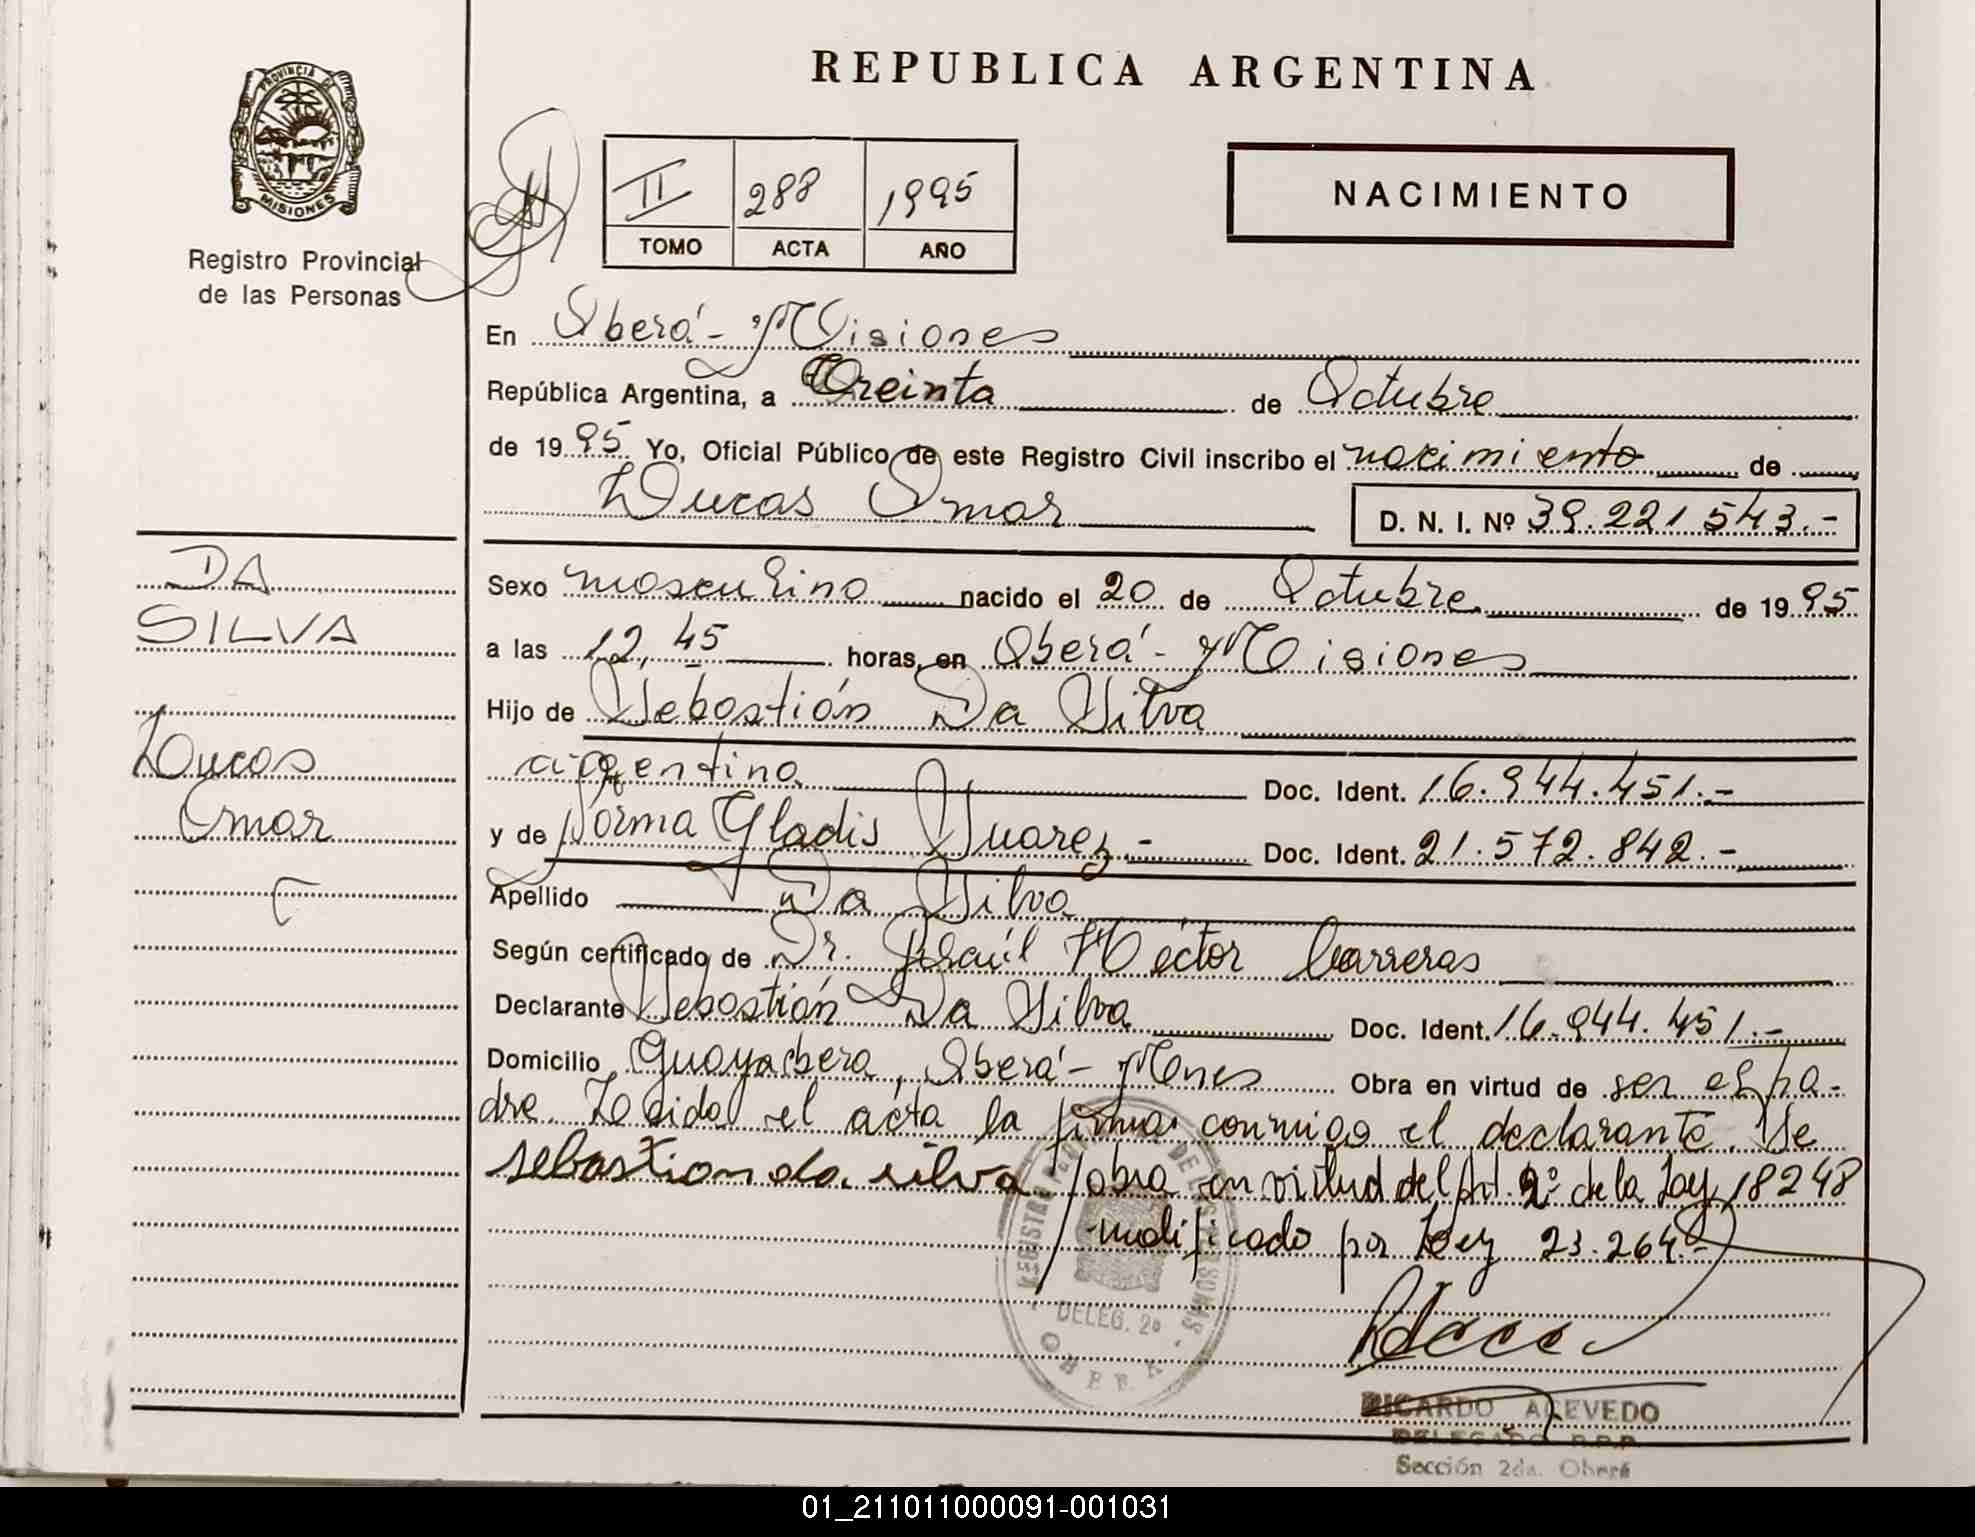 REPUBLICA ARGENTINA
PROVINCIA DE
MISIONES
Registro Provincial
de las Personas
II 288 1995
TOMO ACTA AÑO
NACIMIENTO
En Oberá - Misiones
República Argentina, a Treinta de Octubre
de 1995 Yo, Oficial Público de este Registro Civil inscribo el nacimiento de
Lucas Omar D. N. I. Nº 39.221.543.-
DA
SILVA
Lucas
Omar
Sexo masculino nacido el 20 de Octubre de 1995
a las 12,45 horas, en Oberá - Misiones
Hijo de Sebastián Da Silva
argentino Doc. Ident. 16.944.451.-
y de Norma Gladis Suarez.- Doc. Ident. 21.572.842.-
Apellido Da Silva
Según certificado de Dr. Raúl Héctor Carreras
Declarante Sebastián Da Silva Doc. Ident. 16.944.451.-
Domicilio Guayabera, Oberá - Mnes Obra en virtud de ser el pa-
dre. Leída el acta la firma conmigo el declarante. Se
sebastian da silva / obra en virtud del Art. 2º de la Ley 18248
modificado por Ley 23.264.-
REGISTRO DE LAS PERSONAS
DELEG. 2ª
OBERA
RICARDO ACEVEDO
DELEGADO R.P.P.
Sección 2da. Oberá
01_211011000091-001031